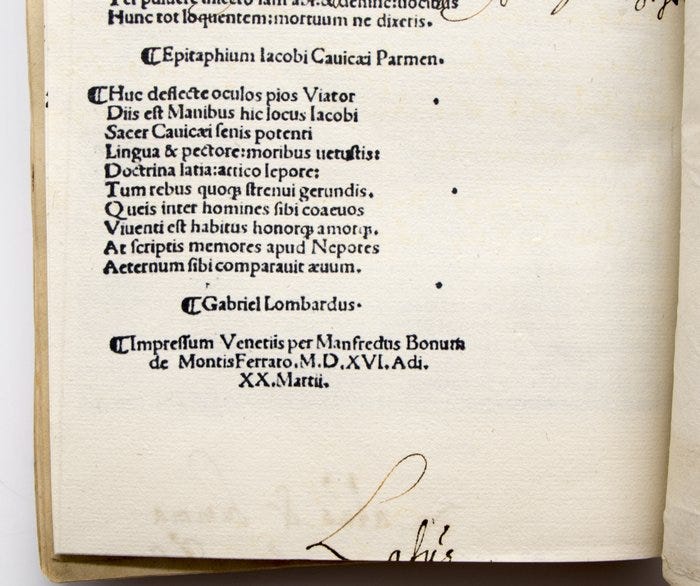 Hunc tot loquentem:mortuum ne dixeris.
⸿Epitaphium Iacobi Cauicæi Parmen.
⸿Huc deflecte oculos pios Viator
Diis est Manibus hic locus Iacobi
Sacer Cauicæi senis potenti
Lingua & pectore:moribus uetustis:
Doctrina latia:attico lepore:
Tum rebus quoqꝫ strenui gerundis.
Queis inter homines sibi coaeuos
Viuenti est habitus honorqꝫ amorqꝫ.
At scriptis memores apud Nepotes
Aeternum sibi comparauit æuum.
⸿Gabriel Lombardus.
⸿Impressum Venetiis per Manfredus Bonum
de MontisFerrato.M.D.XVI.Adi.
XX.Martii.